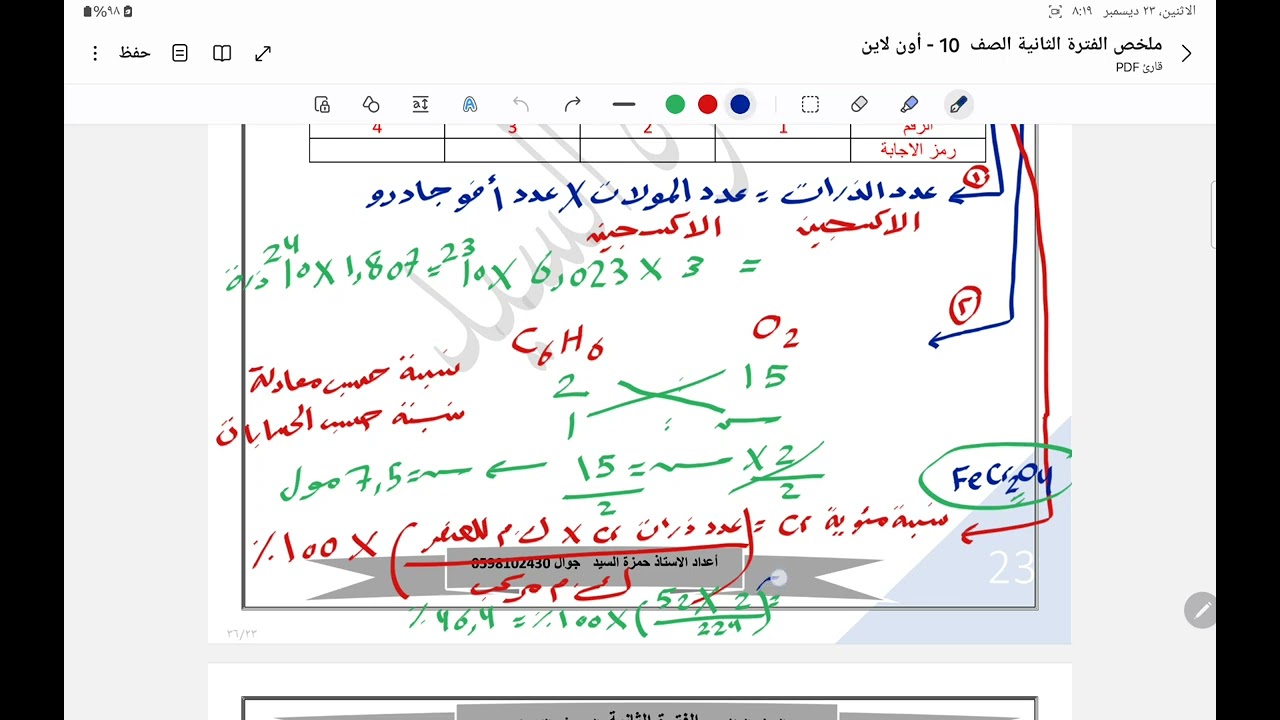 الاثنين، ٢٣ ديسمبر ٨:١٩ ٩٨%
ملخص الفترة الثانية الصف 10 - أون لاين
قارئ PDF
حفظ
الرقم 1 2 3 4
رمز الاجابة
① عدد الذرات = عدد المولات X عدد أفوجادرو
الاكسجين الاكسجين
= 3 X 6,023 X 10²³ = 1,807 X 10²⁴ ذرة
②
C6H6 O2
نسبة حسب معادلة 2 15
نسبة حسب الحسابات 1 س
س X 2 / 2 = 15 / 2 ← س = 7,5 مول
FeCr2O4
نسبة مئوية Cr = (عدد ذرات Cr X ك.م للعنصر / ك.م مركب) X 100 %
أعداد الاستاذ حمزة السيد جوال 0598102430
= (2 X 52 / 224) X 100 % = 46,4 %
23
٣٦/٢٣